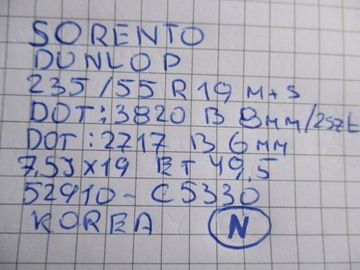 SORENTO
DUNLOP
235/55 R 19 M+S
DOT:3820 B 8MM/2SZT
DOT:2717 B 6MM
7,5J X 19 ET 49,5
52910-C5330
KOREA N